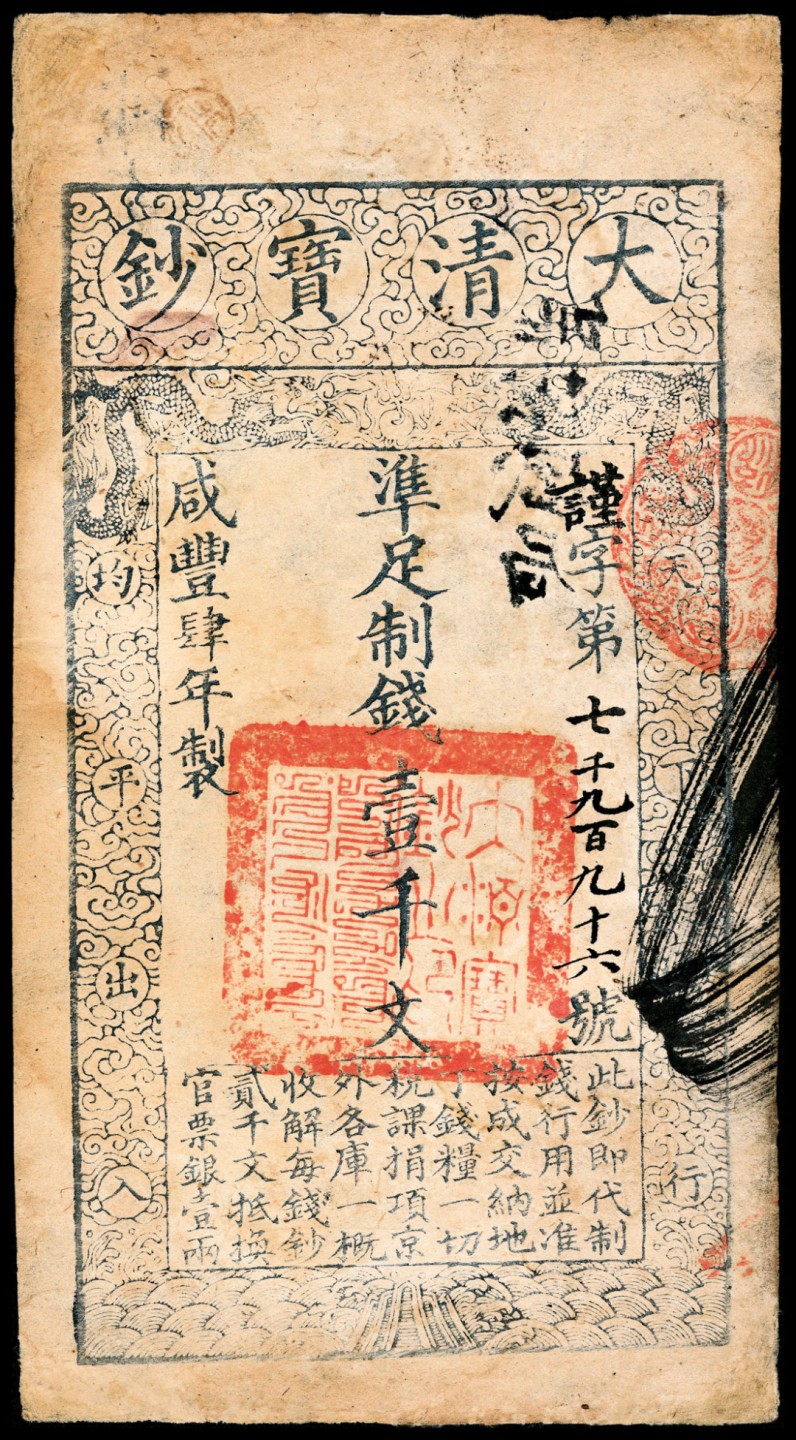 大清寶鈔
謹字第七千九百九十六號
準足制錢壹千文
咸豐肆年製
天下
行
均平出入
此鈔即代制
錢行用並准
按成交納地
丁錢糧一切
稅課捐項京
外各庫一概
收解每錢鈔
貳千文抵換
官票銀壹兩